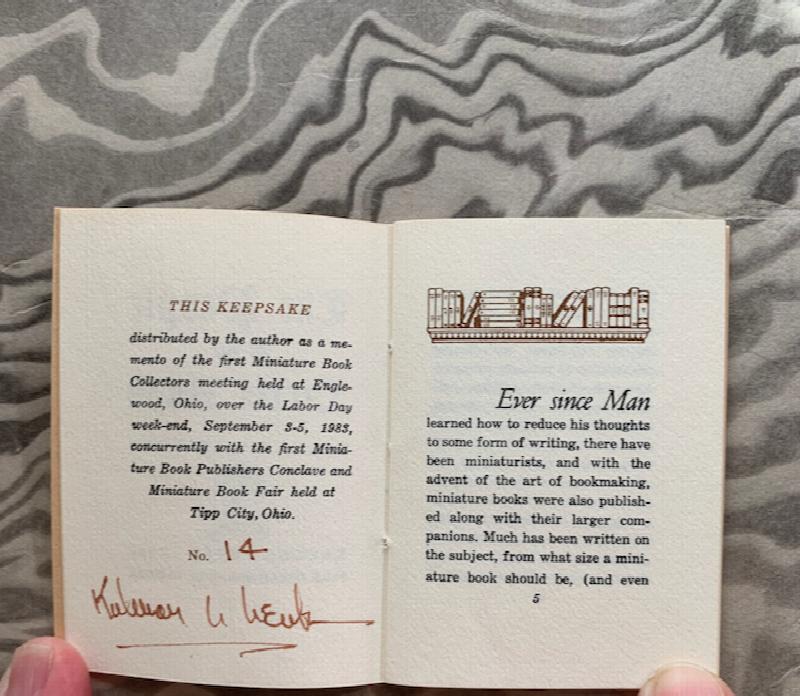 THIS KEEPSAKE
distributed by the author as a me-
mento of the first Miniature Book
Collectors meeting held at Engle-
wood, Ohio, over the Labor Day
week-end, September 3-5, 1983,
concurrently with the first Minia-
ture Book Publishers Conclave and
Miniature Book Fair held at
Tipp City, Ohio.
No. 14
Kalman
Ever since Man
learned how to reduce his thoughts
to some form of writing, there have
been miniaturists, and with the
advent of the art of bookmaking,
miniature books were also publish-
ed along with their larger com-
panions. Much has been written on
the subject, from what size a mini-
ature book should be, (and even
5